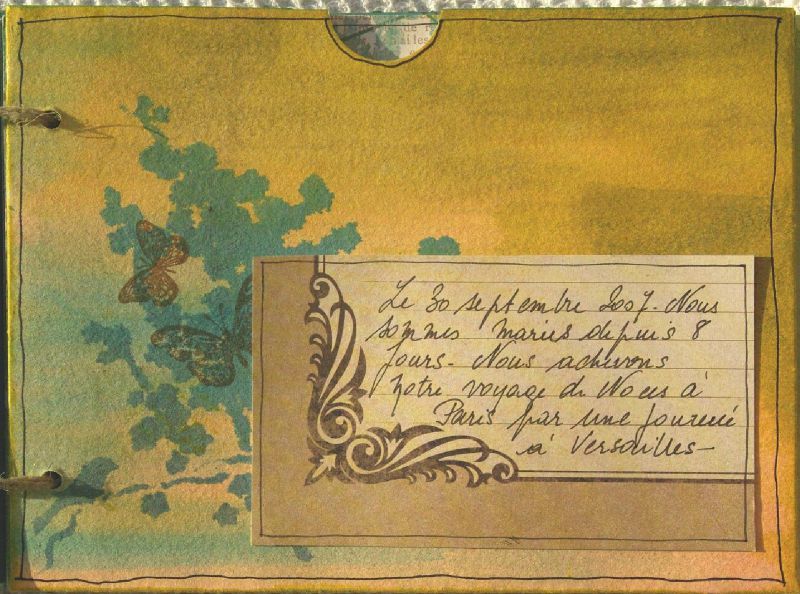 de r
miles
Le 30 septembre 2007. Nous
sommes mariés depuis 8
jours - Nous achevons
notre voyage de Noces à
Paris par une journée
à Versailles -